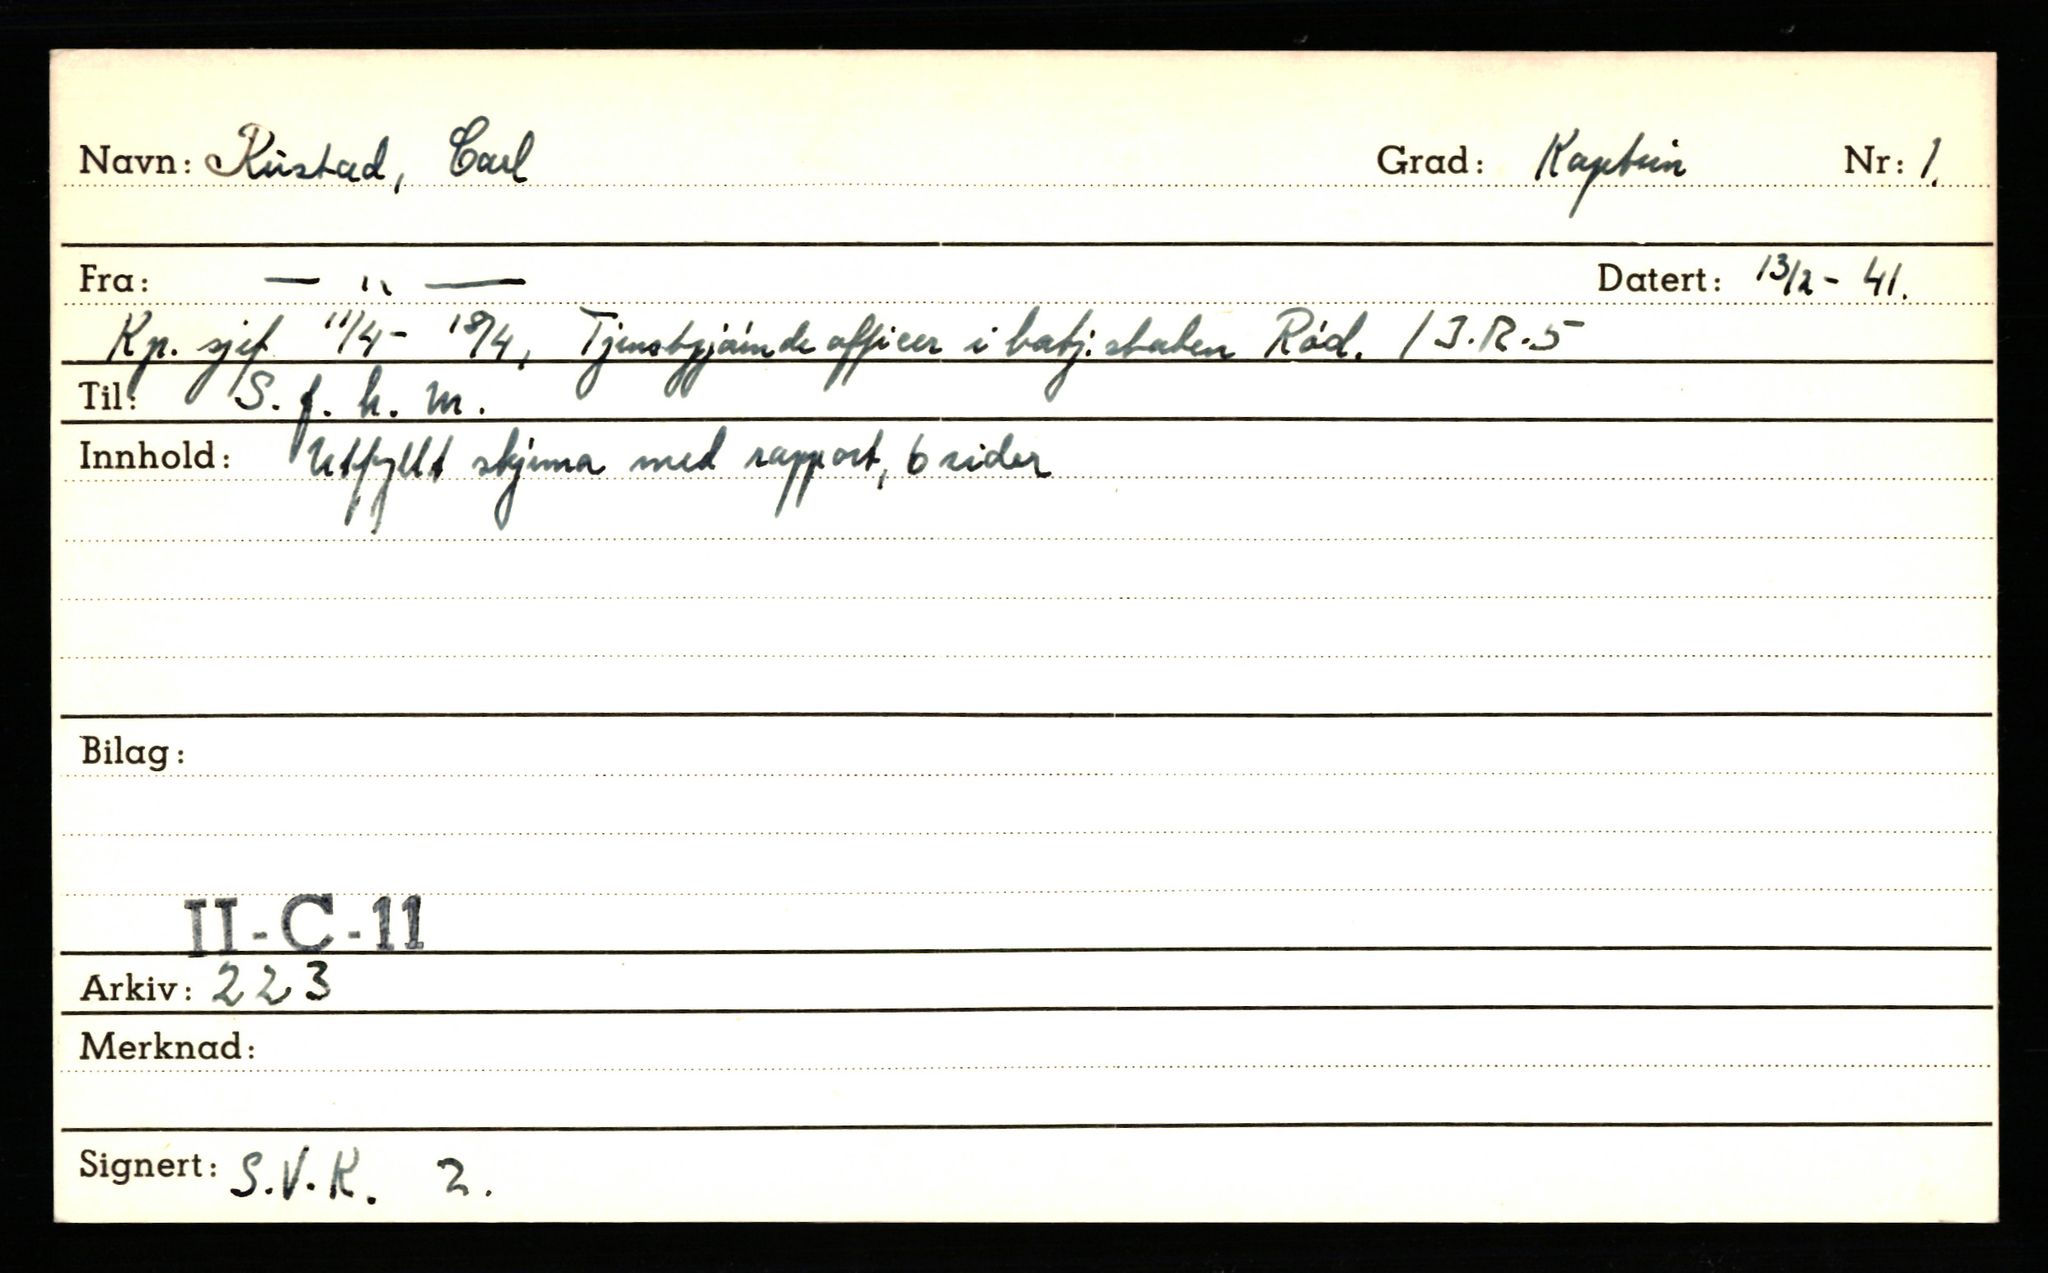 Navn: Kustad, Carl Grad: Kaptein Nr: 1.
Fra: — " — Datert: 13/2 - 41.
Kp. sjef 11/4 - 18/4, Tjenestgjørende officer i batj. staben Rød. / I.R.5
Til: S. f. h. m.
Innhold: Utfyllt skjema med rapport, 6 sider
Bilag:
II-C-11
Arkiv: 223
Merknad:
Signert: S.V.K. 2.